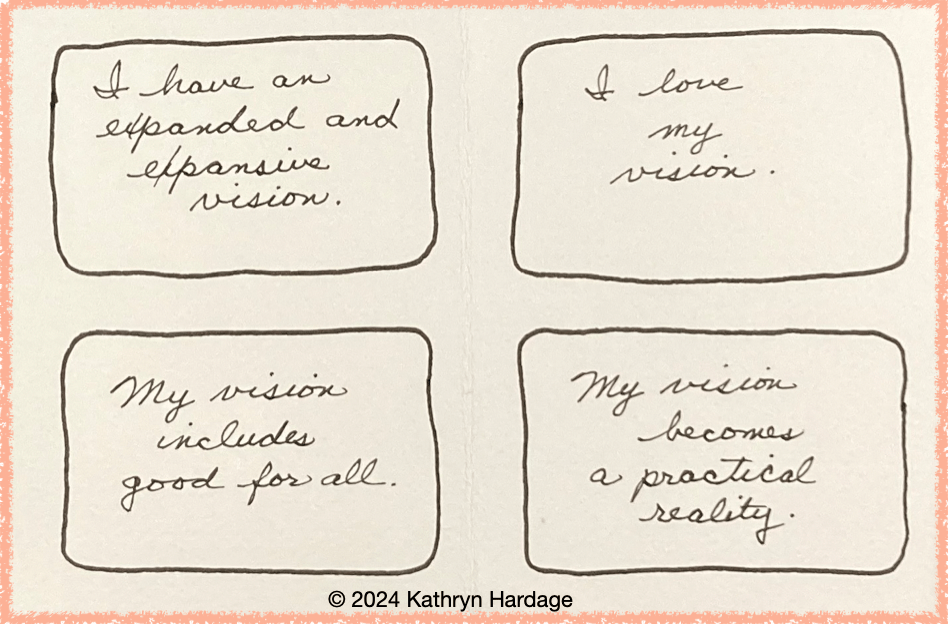 I have an
expanded and
expansive
vision.
I love
my
vision.
My vision
includes
good for all.
My vision
becomes
a practical
reality.
© 2024 Kathryn Hardage